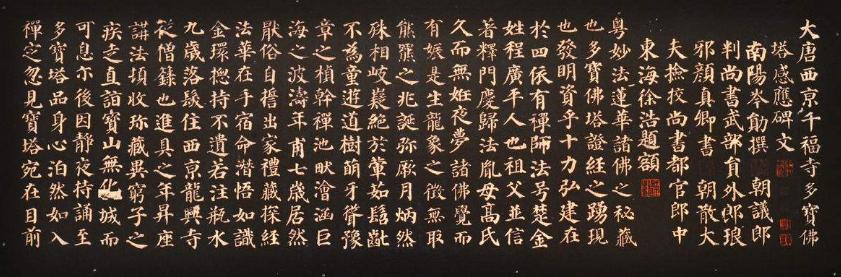 大唐西京千福寺多寶佛
塔感應碑文
南陽岑勛撰 朝議郎
判尚書武部員外郎琅
邪顏真卿書 朝散大
夫撿挍尚書都官郎中
東海徐浩題額
粵妙法蓮華諸佛之秘藏
也多寶佛塔證經之踴現
也發明資乎十力弘建在
於四依有禪師法号楚金
姓程廣平人也祖父並信
著釋門慶歸法胤母高氏
久而無姙夜夢諸佛覺而
有娠是生龍象之徵無取
熊羆之兆誕弥厥月炳然
殊相岐嶷絕於葷茹髫齔
不為童遊道樹萌牙聳豫
章之楨幹禪池畎澮涵巨
海之波濤年甫七歲居然
猒俗自誓出家禮藏探經
法華在手宿命潛悟如識
金環揔持不遺若注瓶水
九歲落髮住西京龍興寺
從僧籙也進具之年昇座
講法頓收珎藏異窮子之
疾走直詣寶山無化城而
可息尒後因靜夜持誦至
多寶塔品身心泊然如入
禪定忽見寶塔宛在目前